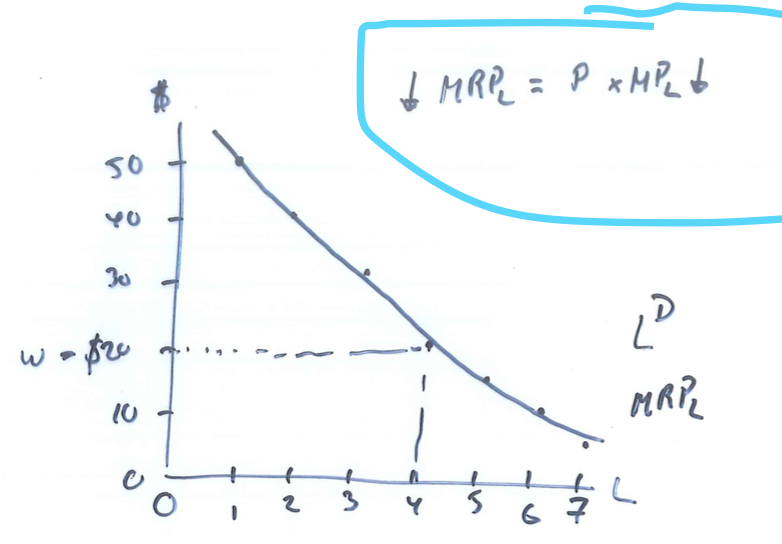 ↓ MRPL = P × MPL ↓
$
50
40
30
W = $20
10
0
0 1 2 3 4 5 6 7 L
LD
MRPL